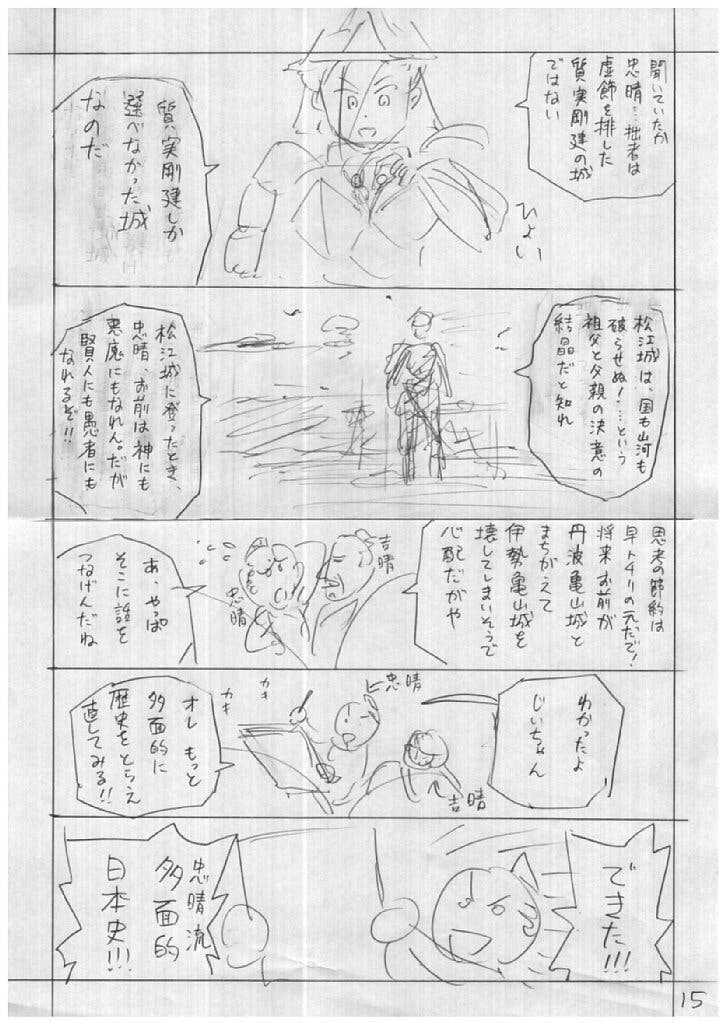 聞いていたか
忠晴…拙者は
虚飾を排した
質実剛建の城
ではない
ひょい
質実剛建しか
選べなかった城
なのだ
松江城は、国も山河も
破らせぬ!……という
祖父と父親の決意の
結晶だと知れ
松江城に登ったとき、
忠晴、お前は神にも
悪魔にもなれん。だが
賢人にも愚者にも
なれるぞ!!
思考の節約は
早トチリの元だで!
将来お前が
丹波亀山城と
まちがえて
伊勢亀山城を
壊してしまいそうで
心配だがや
吉晴
忠晴
あ、やっぱ
そこに話を
つなげんだね
わかったよ
じいちゃん
忠晴
吉晴
カキ
カキ
オレ もっと
多面的に
歴史をとらえ
直してみる!!
できた!!!
忠晴流
多面的
日本史!!!
15